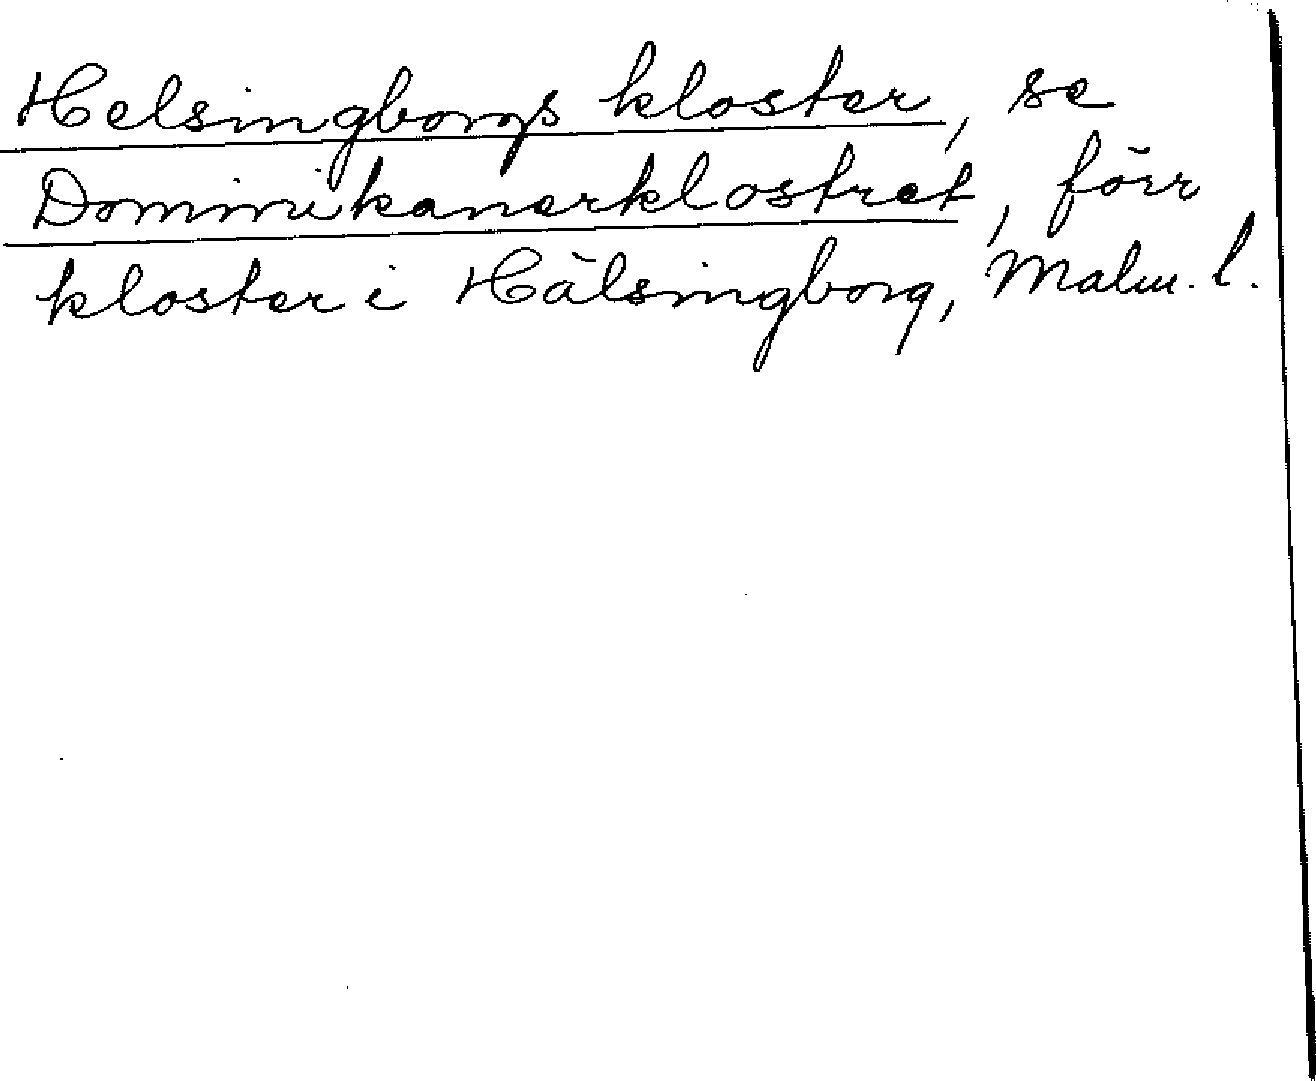 Helsingborgs kloster, se
Dominikanerklostret, förr
kloster i Hälsingborg, Malm. l.